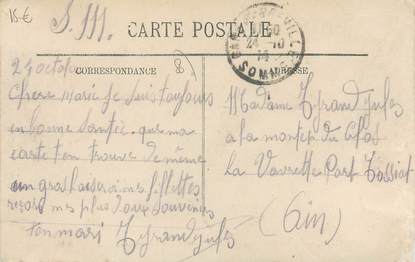 15€
S. M.
CARTE POSTALE
CORRESPONDANCE
ADRESSE
8
24-10
14
SOMME
24 octobre
Chère Marie je suis toujours
en bonne santée que ma
carte ten trouve de même
un gros baiser à mes fillettes
reçois mes plus doux souvenirs
ton mari
Madame
a la montée du
La Port
(Ain)